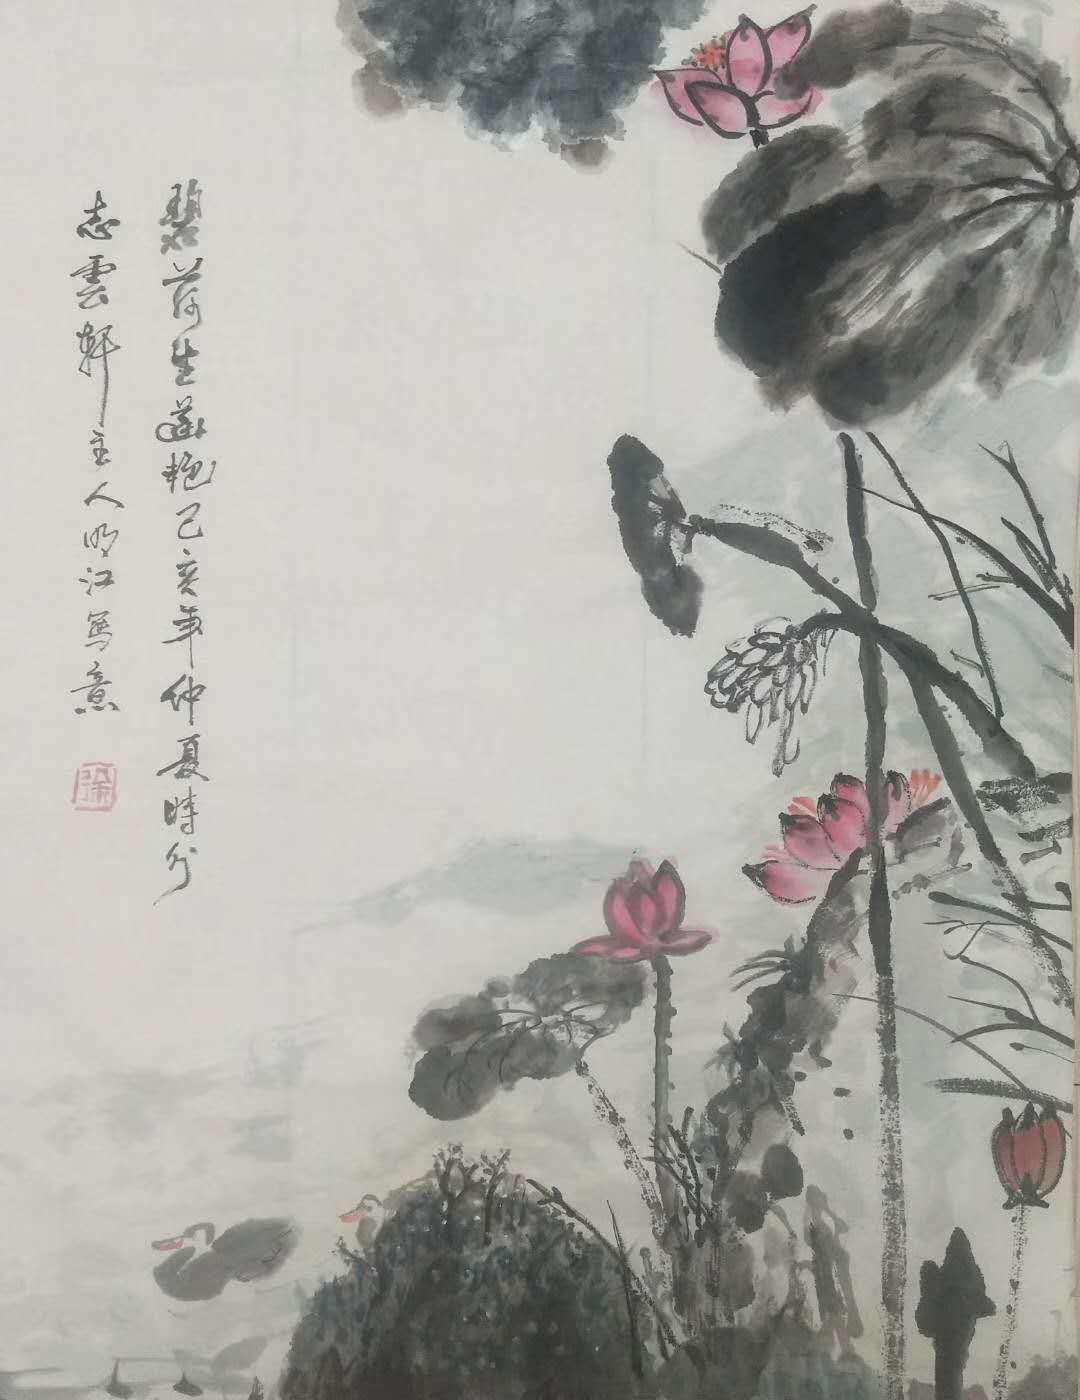 碧荷生幽艳己亥年仲夏时分
志雲軒主人明江写意